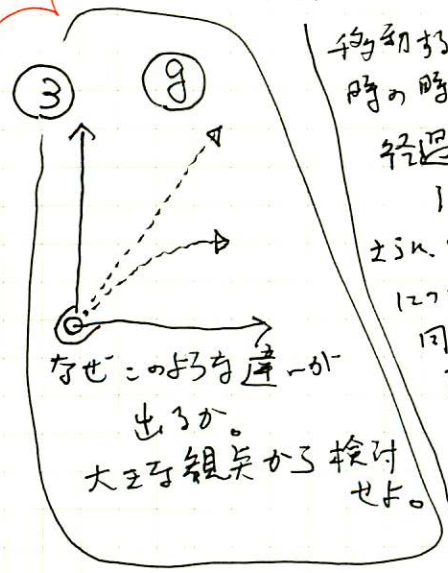 ③ ⑨
なぜこのような違いが
出るか。
大きな観点から検討
せよ。
移動する
時の時
経過